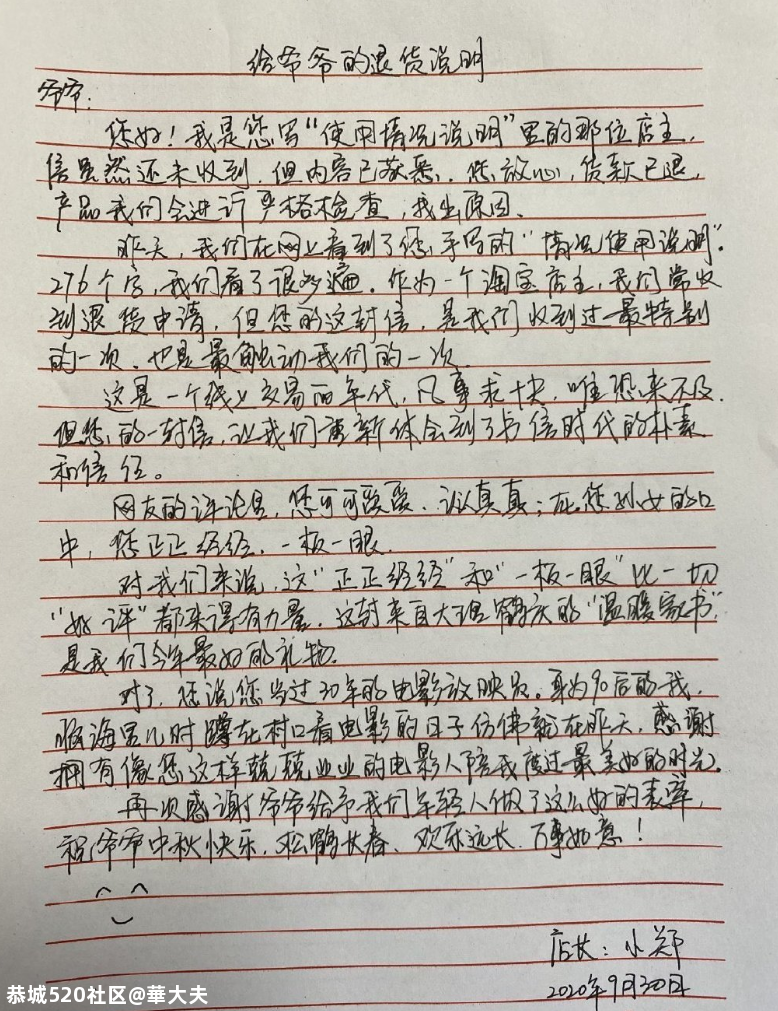 给爷爷的退货说明
爷爷:
您好！我是您写“使用情况说明”里的那位店主,
信虽然还未收到,但内容已获悉.您放心,货款已退,
产品我们会进行严格检查,找出原因.
昨天,我们在网上看到了您手写的“情况使用说明”.
276个字,我们看了很多遍.作为一个淘宝店主,我们常收
到退货申请,但您的这封信,是我们收到过最特别
的一次.也是最触动我们的一次
这是一个线上交易的年代,凡事求快,唯恐来不及.
但您的一封信,让我们重新体会到了书信时代的朴素
和信任。
网友的评论里,您可可爱爱、认认真真;在您孙女的口
中,您正正经经、一板一眼.
对我们来说,这“正正经经”和“一板一眼”比一切
“好评”都来得有力量.这封来自大理鹤庆的“温暖家书”,
是我们今年最好的礼物.
对了,您说您当过30年的电影放映员。身为90后的我,
脑海里儿时蹲在村口看电影的日子仿佛就在昨天,感谢
拥有像您这样兢兢业业的电影人陪我度过最美好的时光.
再次感谢爷爷给予我们年轻人做了这么好的表率,
祝爷爷中秋快乐、松鹤长春、欢乐远长、万事如意!
店长:小郑
2020年9月30日
恭城520社区@華大夫